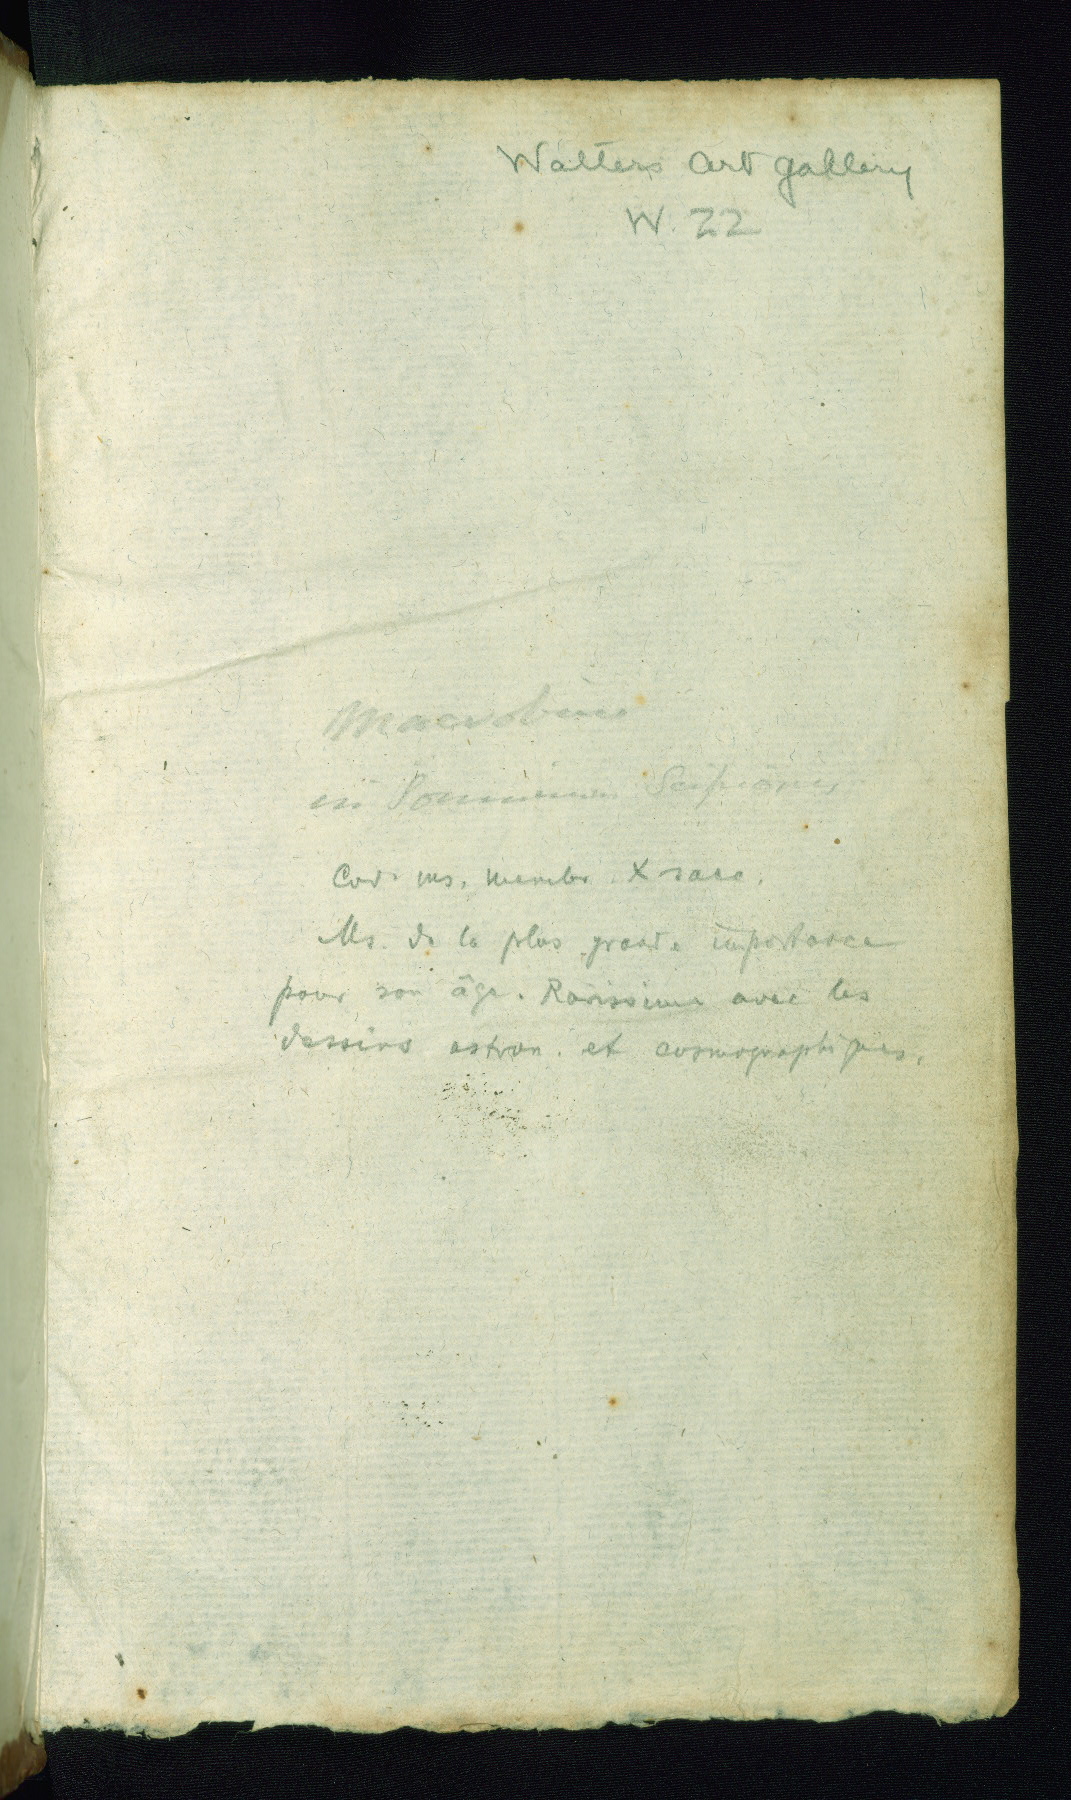 Walters Art Gallery
W. 22
Macrobius
in Somnium Scipionis
Cod. ms. membr. X saec.
Ms. de la plus grande importance
pour son âge. Rarissime avec les
dessins astron. et cosmographiques.